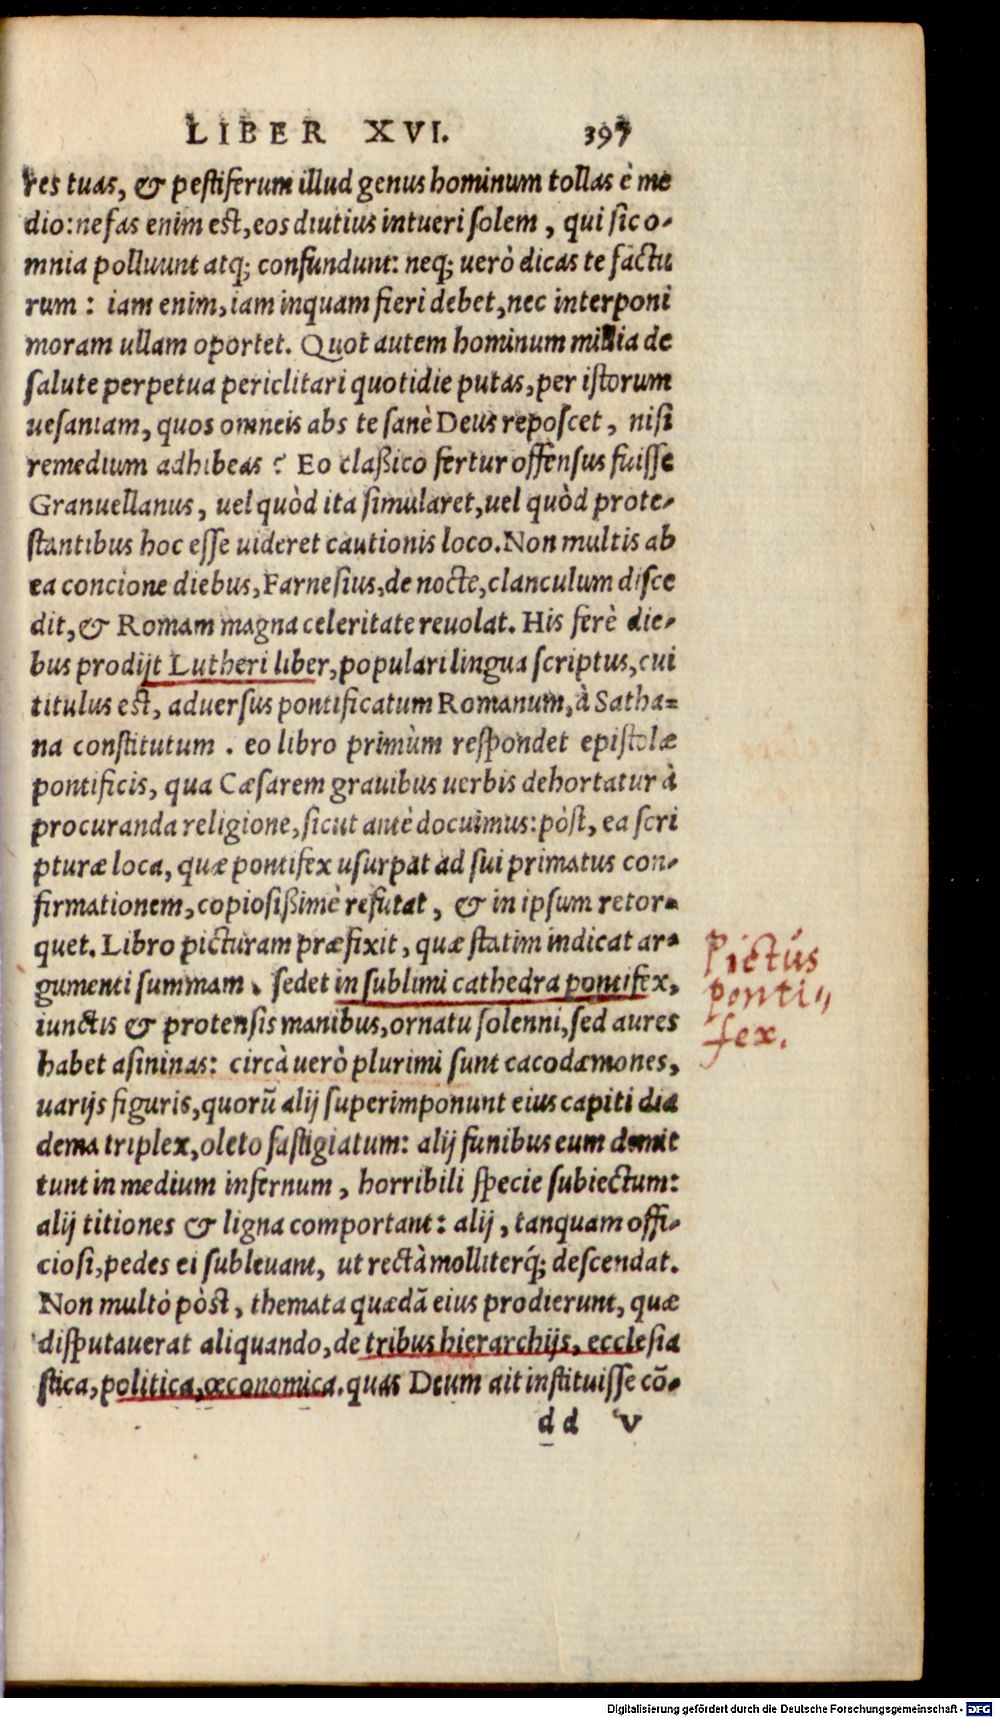 LIBER XVI. 397
res tuas, & pestiferum illud genus hominum tollas è me
dio: nefas enim est, eos diutius intueri solem, qui sic o-
mnia polluunt atq; confundunt: neq; uerò dicas te factu
rum: iam enim, iam inquam fieri debet, nec interponi
moram ullam oportet. Quot autem hominum millia de
salute perpetua periclitari quotidie putas, per istorum
uesaniam, quos omneis abs te sanè Deus reposcet, nisi
remedium adhibeas? Eo claßico fertur offensus fuisse
Granuellanus, uel quòd ita simularet, uel quòd prote-
stantibus hoc esse uideret cautionis loco. Non multis ab
ea concione diebus, Farnesius, de nocte, clanculum disce
dit, & Romam magna celeritate reuolat. His ferè die-
bus prodijt Lutheri liber, populari lingua scriptus, cui
titulus est, aduersus pontificatum Romanum, à Satha=
na constitutum. eo libro primùm respondet epistolæ
pontificis, qua Cæsarem grauibus uerbis dehortatur à
procuranda religione, sicut antè docuimus: pòst, ea scri
pturæ loca, quæ pontifex usurpat ad sui primatus con-
firmationem, copiosißimè refutat, & in ipsum retor-
quet. Libro picturam præfixit, quæ statim indicat ar-
gumenti summam. sedet in sublimi cathedra pontifex,
iunctis & protensis manibus, ornatu solenni, sed aures
habet asininas: circà uerò plurimi sunt cacodæmones,
uarijs figuris, quorũ alij superimponunt eius capiti dia
dema triplex, oleto fastigiatum: alij funibus eum demit
tunt in medium infernum, horribili specie subiectum:
alij titiones & ligna comportant: alij, tanquam offi-
ciosi, pedes ei subleuant, ut rectà molliterq́; descendat.
Non multò pòst, themata quædã eius prodierunt, quæ
disputauerat aliquando, de tribus hierarchijs, ecclesia
stica, politica, œconomica. quas Deum ait instituisse cõ-
dd v
Pictus
ponti„
fex.
Digitalisierung gefördert durch die Deutsche Forschungsgemeinschaft - DFG